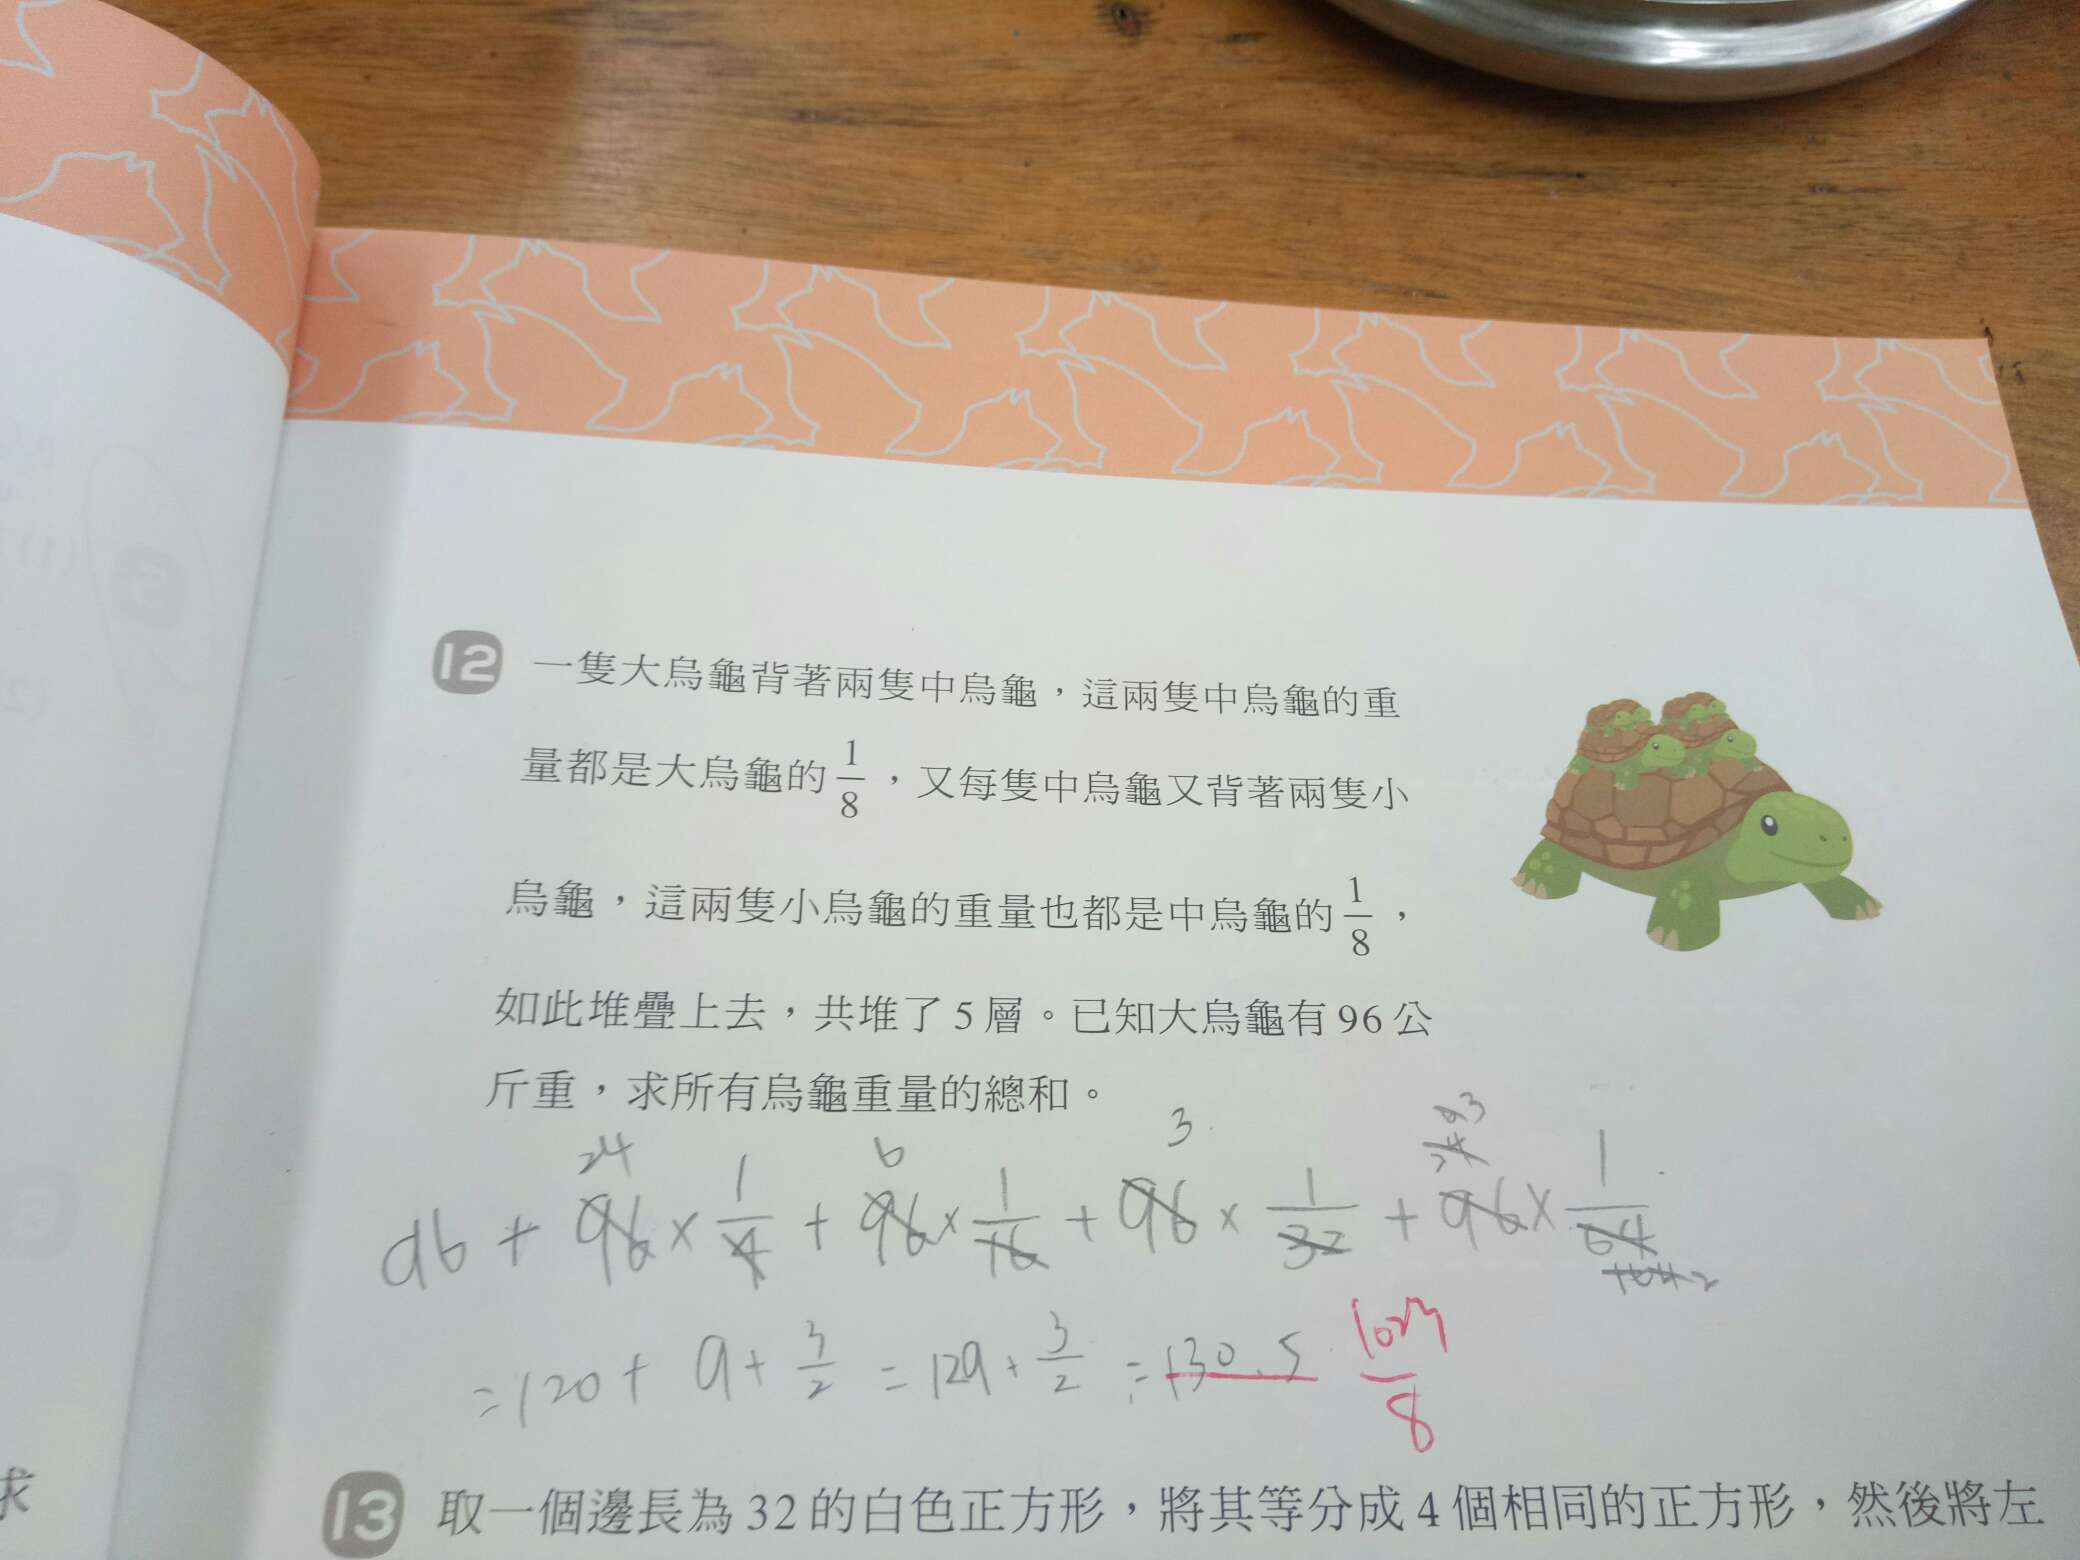 12 一隻大烏龜背著兩隻中烏龜，這兩隻中烏龜的重
量都是大烏龜的 1/8 ，又每隻中烏龜又背著兩隻小
烏龜，這兩隻小烏龜的重量也都是中烏龜的 1/8 ，
如此堆疊上去，共堆了 5 層。已知大烏龜有 96 公
斤重，求所有烏龜重量的總和。
24 6 3
96 + 96 × 1/4 + 96 × 1/16 + 96 × 1/32 + 96 × 1/64
= 120 + 9 + 3/2 = 129 + 3/2 = 130.5 1023/8
13 取一個邊長為 32 的白色正方形，將其等分成 4 個相同的正方形，然後將左
求